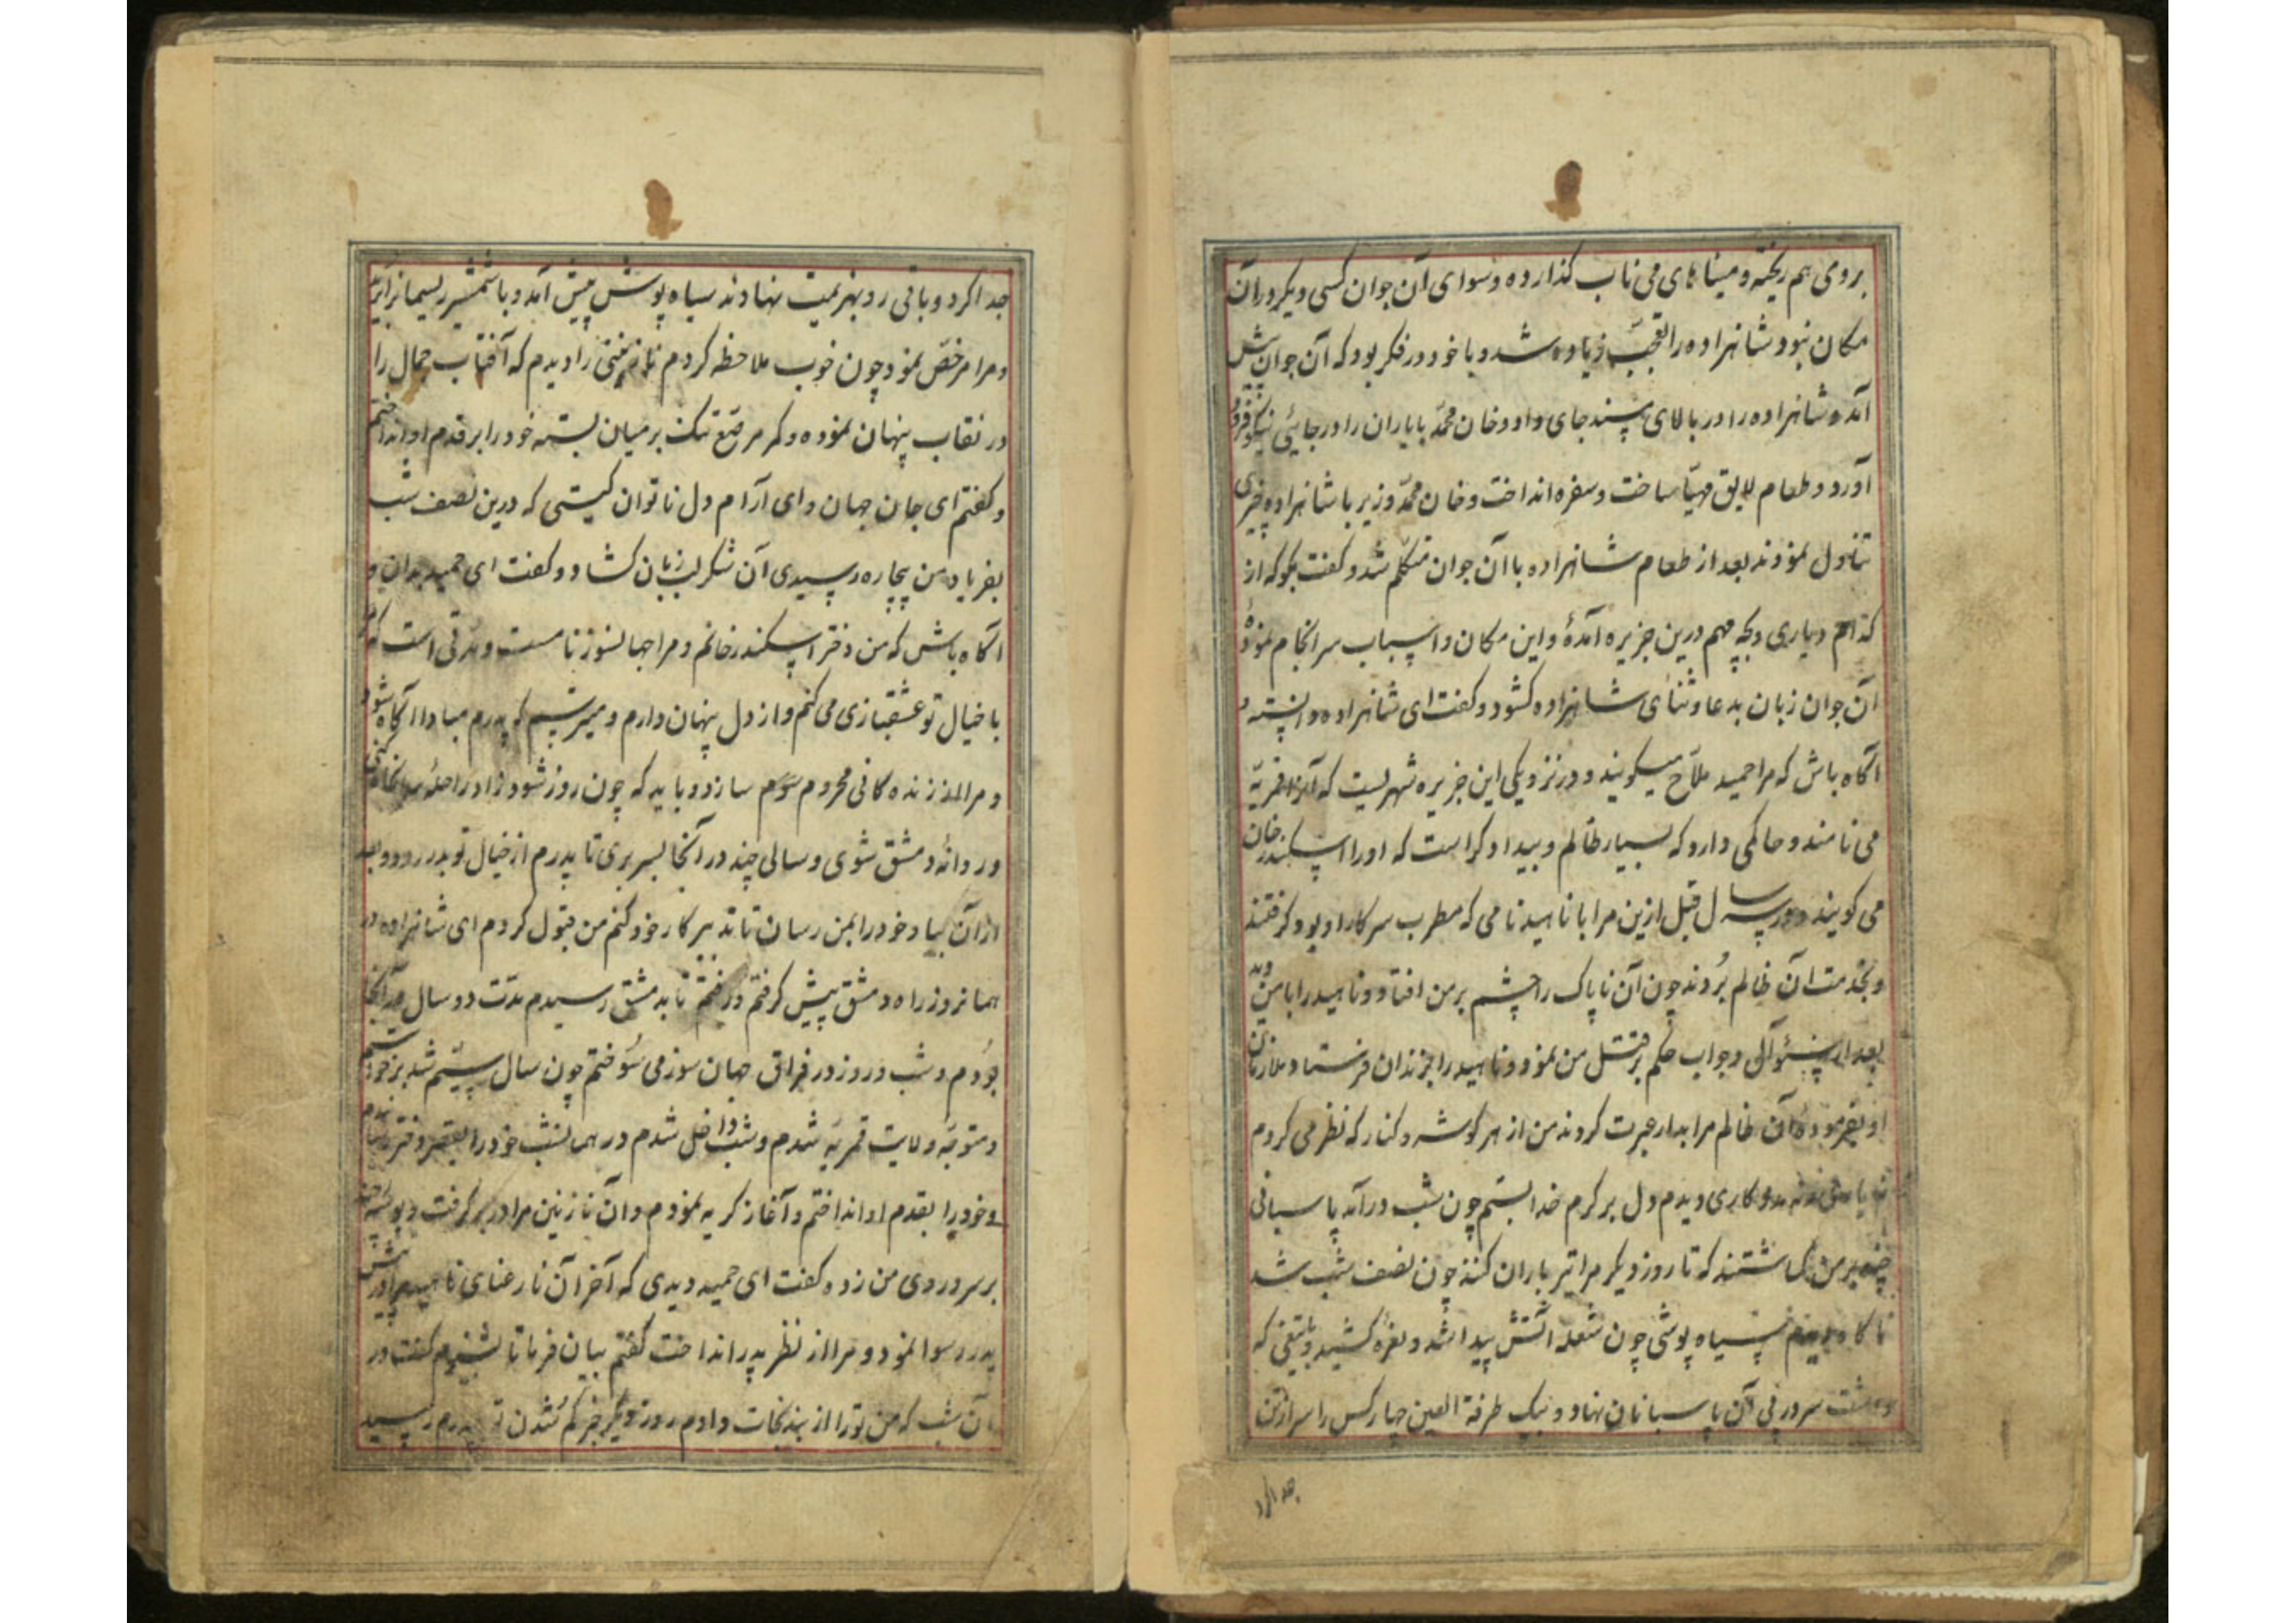 بروی هم ریخته و مینا های می ناب کذارده و سوای آن جوان کسی دیکر در آن
مکان نبود شاهزاده را تعجب زیاده شد و با خود در فکر بود که آن جوان پیش
آمد و شاهزاده را در بالای مسند جای داد و خان محمد با یاران را در جائی نیکو فرود
آورد و طعام لایق مهیا ساخت و سفره انداخت و خان محمد وزیر با شاهزاده چیزی
تناول نمودند بعد از طعام شاهزاده با آن جوان متکلم شد و کفت بکو که از
کدام دیاری و بچه مهم درین جزیره آمدهٔ و این مکان و اسباب سرانجام نمودهٔ
آن جوان زبان بدعا و ثنای شاهزاده کشود و کفت ای شاهزاده دانسته و
آکاه باش که مرا حمید ملاح میکویند و در نزدیکی این جزیره شهریست که آنرا قمریه
می نامند و حاکمی دارد که بسیار ظالم و بیداد کر است که او را اسکندر خان
می کویند و در سه سال قبل ازین مرا با ناهید نامی که مطرب سرکار او بود کرفتند
و بخدمت آن ظالم بردند چون آن ناپاک را چشم بر من افتاد و ناهید را با من دید
بعد از سئوال و جواب حکم بر قتل من نمود و ناهید را بزندان فرستاد ملازمان
او بفرموده آن ظالم مرا بدار عبرت کردند من از هر کوشه و کنار که نظر می کردم
نه یاری و نه مدد کاری دیدم دل بر کرم خدا بستم چون شب درآمد پاسبانی
چند بر من کماشتند که تا روز دیکر مرا تیر باران کنند چون نصف شب شد
ناکاه دیدم سیاه پوشی چون شعله آتش پیدا شد و نعره کشید و با تیغی که
داشت سر در پی آن پاسبانان نهاد و بیک طرفة العین چهار کس را سر از تن
جدا کرد
جدا کرد و باقی رو بهزیمت نهادند سیاه پوش پیش آمد و با شمشیر ریسمانرا برید
و مرا مرخص نمود چون خوب ملاحظه کردم نازنینی را دیدم که آفتاب جمال را
در نقاب پنهان نموده و کمر مرصع تنک بر میان بسته خود را بر قدم او انداختم
و کفتم ای جان جهان و ای آرام دل ناتوان کیستی که درین نصف شب
بفریاد من بیچاره رسیدی آن شکر لب زبان کشاد و کفت ای حمید بدان و
آکاه باش که من دختر اسکندر خانم و مرا جهانسوز نامست و مدتی است که
با خیال تو عشقبازی می کنم و از دل پنهان دارم و میترسیم که پدرم مبادا آکاه شود
و مرا از زنده کانی محروم سازد و باید که چون روز شود زاد راحله
و روانهٔ دمشق شوی و سالی چند در آنجا بسر بری تا پدرم از خیال تو بدر رود و بعد
از آن بیا و خود را بمن رسان تا تدبیر کار خود کنم من قبول کردم ای شاهزاده در
همانروز راه دمشق پیش کرفتم و رفتم تا به دمشق رسیدم مدت دو سال در آنجا
بودم و شب و روز در فراق جهان سوز می سوختم چون سال سیّم شد
و متوجه ولایت قمریه شدم و شب داخل شدم در همانشب خود را بقصر دختر رسانیدم
و خود را بقدم او انداختم و آغاز کریه نمودم و آن نازنین مرا در بر کرفت و بوسه چند
بر سر و روی من زد و کفت ای حمید دیدی که آخر آن نا رعنای ناهید مرا در پیش
پدر رسوا نمود و مرا از نظر پدر انداخت کفتم بیان فرما تا بشنوم کفت در
آن شب که من تو را از بند نجات دادم روز دیکر خبر کم شدن تو بپدرم رسید